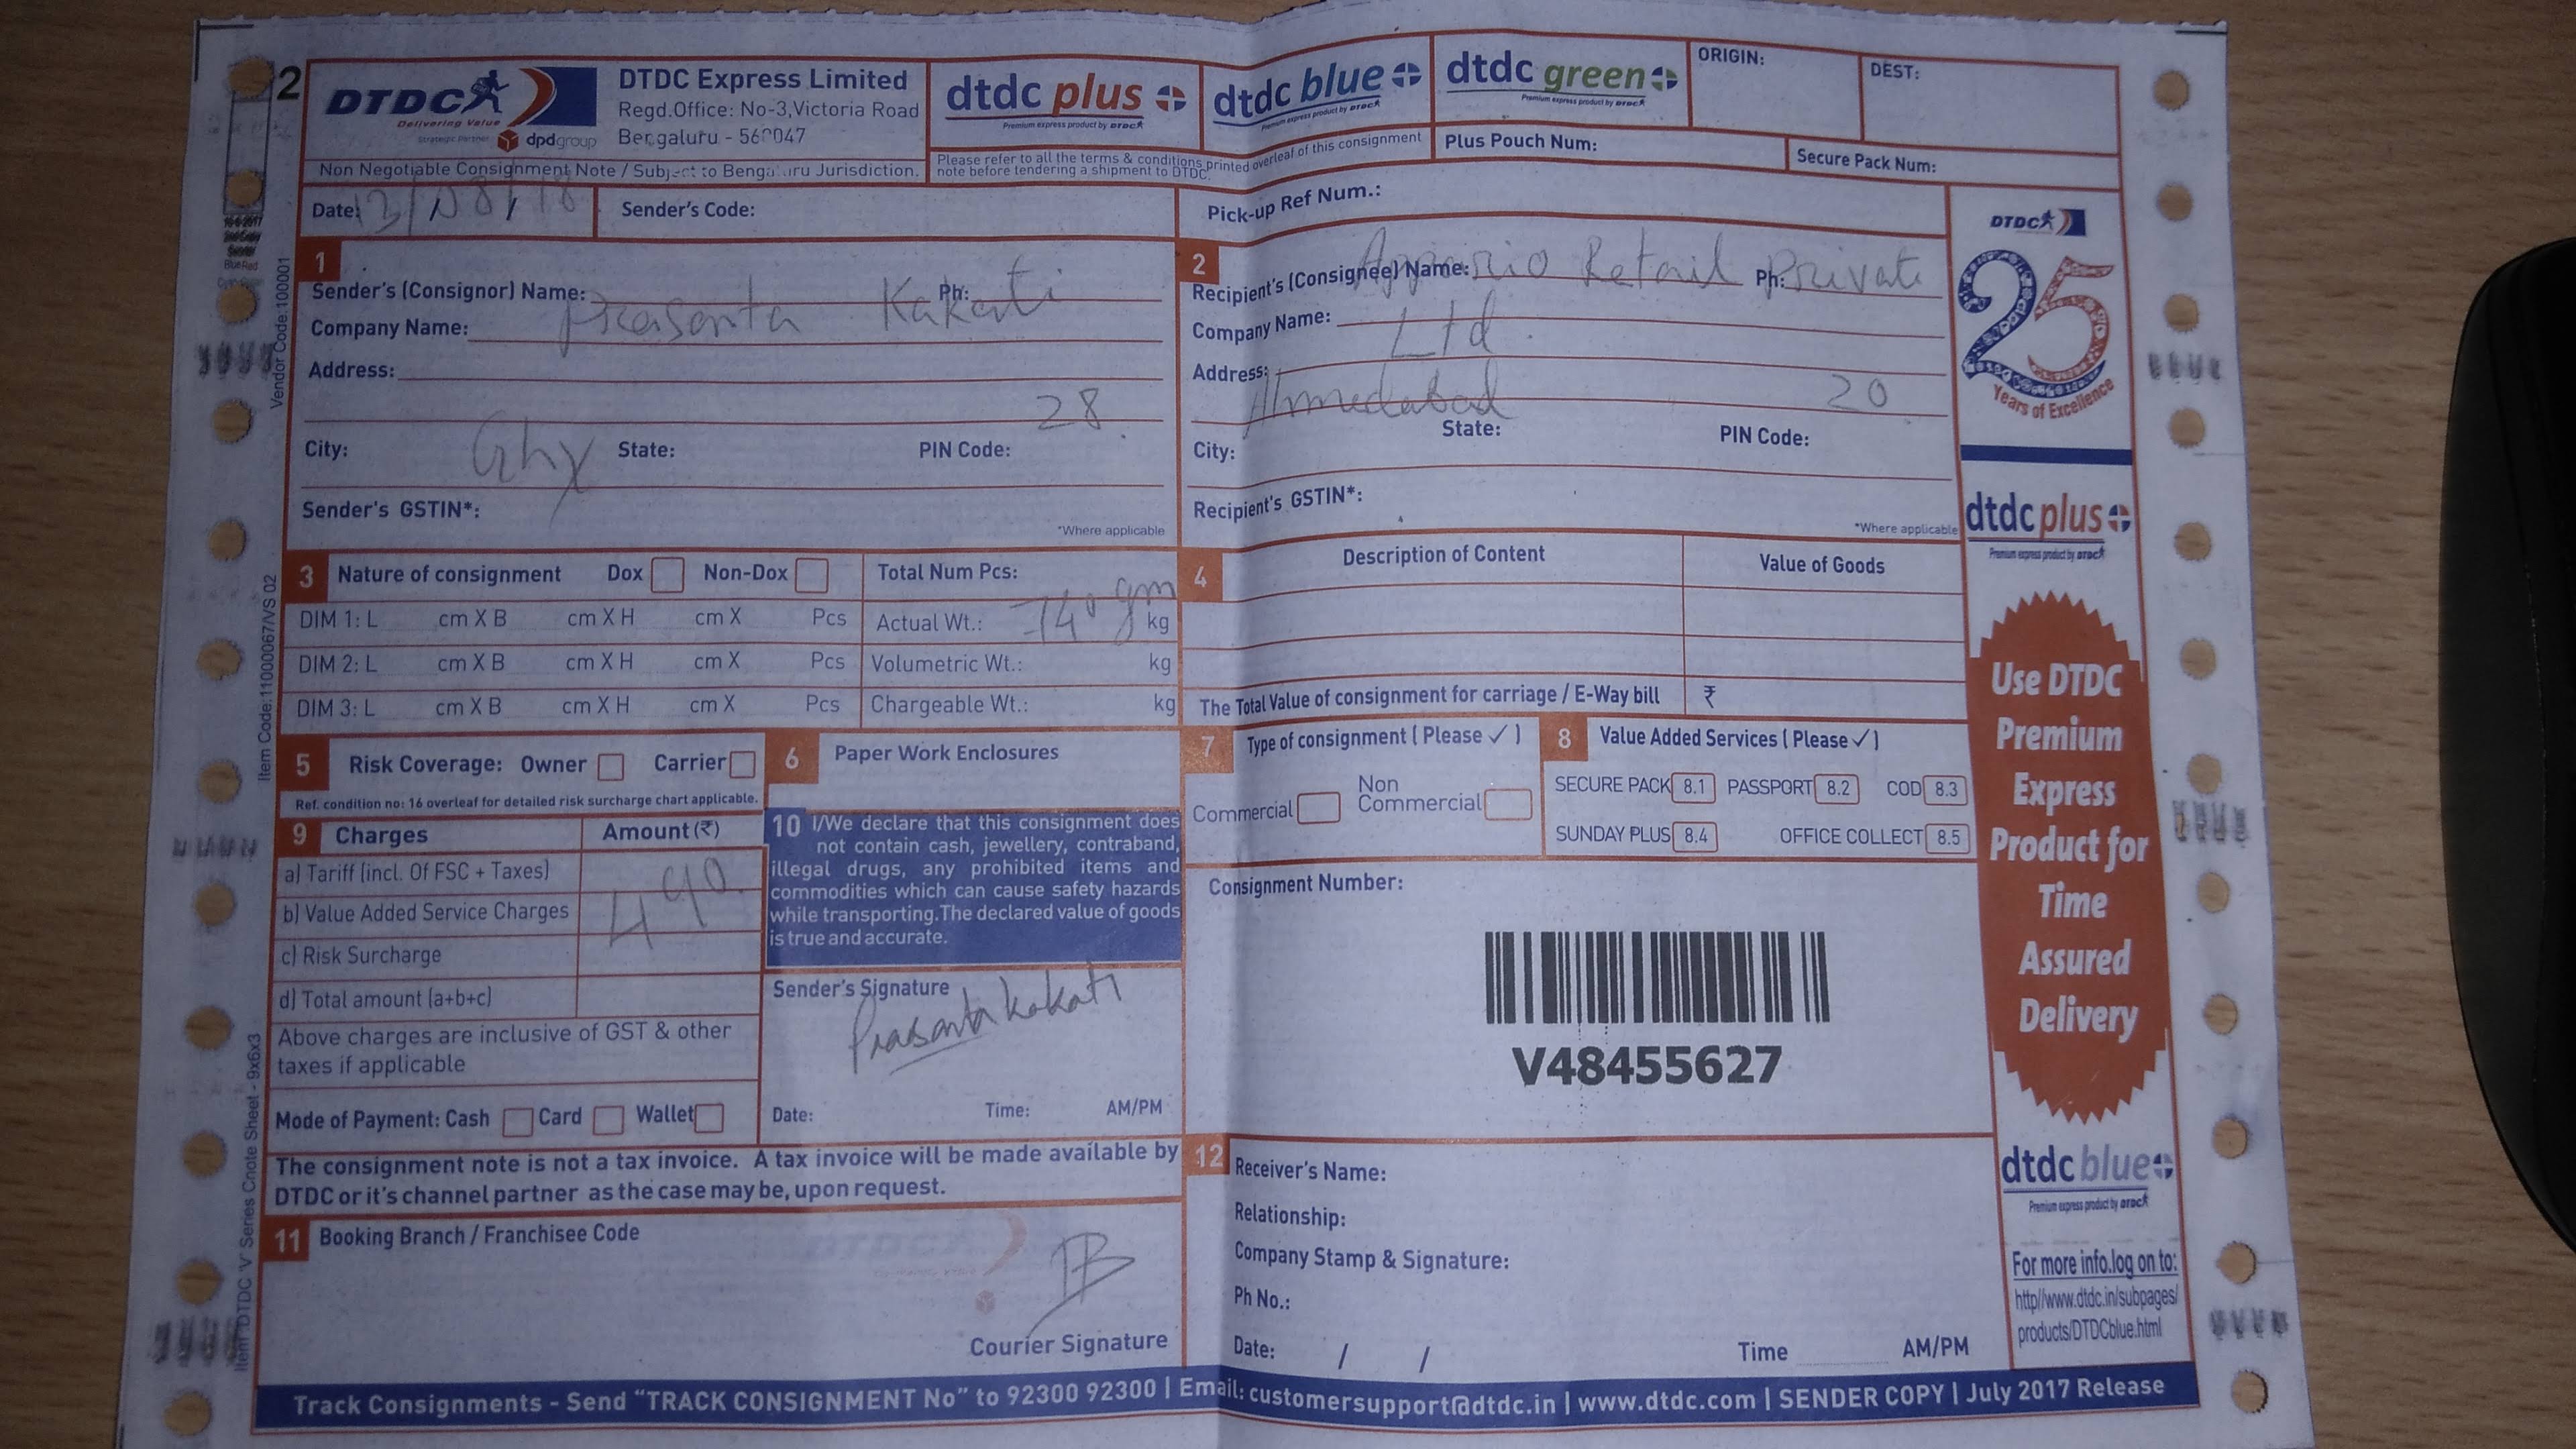 2
DTDC
Delivering Value
Strategic Partner dpdgroup
DTDC Express Limited
Regd.Office: No-3,Victoria Road
Bengaluru - 560047
Non Negotiable Consignment Note / Subject to Bengaluru Jurisdiction.
dtdc plus
Premium express product by DTDC
dtdc blue
Premium express product by DTDC
dtdc green
Premium express product by DTDC
Please refer to all the terms & conditions printed overleaf of this consignment
note before tendering a shipment to DTDC.
ORIGIN:
DEST:
Plus Pouch Num:
Secure Pack Num:
Date: 13/08/18
Sender's Code:
Pick-up Ref Num.:
1
Sender's (Consignor) Name: Ph:
Prasanta Kakati
Company Name:
Address:
28
City: Ghy State: PIN Code:
Sender's GSTIN*:
*Where applicable
2
Recipient's (Consignee) Name: Appario Retail Ph: Private
Company Name: Ltd
Address:
Ahmedabad 20
City: State: PIN Code:
Recipient's GSTIN*:
*Where applicable
3 Nature of consignment Dox Non-Dox
Total Num Pcs:
DIM 1: L cm X B cm X H cm X Pcs
Actual Wt.: 740 gm kg
DIM 2: L cm X B cm X H cm X Pcs
Volumetric Wt.: kg
DIM 3: L cm X B cm X H cm X Pcs
Chargeable Wt.: kg
4 Description of Content Value of Goods
The Total Value of consignment for carriage / E-Way bill ₹
5 Risk Coverage: Owner Carrier
Ref. condition no: 16 overleaf for detailed risk surcharge chart applicable.
6 Paper Work Enclosures
7 Type of consignment ( Please ✓ )
Commercial Non Commercial
8 Value Added Services ( Please ✓ )
SECURE PACK 8.1 PASSPORT 8.2 COD 8.3
SUNDAY PLUS 8.4 OFFICE COLLECT 8.5
9 Charges Amount (₹)
a) Tariff (incl. Of FSC + Taxes)
490
b) Value Added Service Charges
c) Risk Surcharge
d) Total amount (a+b+c)
Above charges are inclusive of GST & other
taxes if applicable
Mode of Payment: Cash Card Wallet
10 I/We declare that this consignment does
not contain cash, jewellery, contraband,
illegal drugs, any prohibited items and
commodities which can cause safety hazards
while transporting.The declared value of goods
is true and accurate.
Sender's Signature
Prasanta Kakati
Date: Time: AM/PM
Consignment Number:
V48455627
The consignment note is not a tax invoice. A tax invoice will be made available by
DTDC or it's channel partner as the case may be, upon request.
11 Booking Branch / Franchisee Code
Courier Signature
12 Receiver's Name:
Relationship:
Company Stamp & Signature:
Ph No.:
Date: / / Time AM/PM
DTDC
25
Years of Excellence
dtdc plus
Premium express product by DTDC
Use DTDC
Premium
Express
Product for
Time
Assured
Delivery
dtdc blue
Premium express product by DTDC
For more info.log on to:
http//www.dtdc.in/subpages/
products/DTDCblue.html
Track Consignments - Send "TRACK CONSIGNMENT No" to 92300 92300 | Email: customersupport@dtdc.in | www.dtdc.com | SENDER COPY | July 2017 Release
Vendor Code:100001
Item Code:11000067/VS 02
Item :DTDC 'V' Series Cnote Sheet - 9x6x3